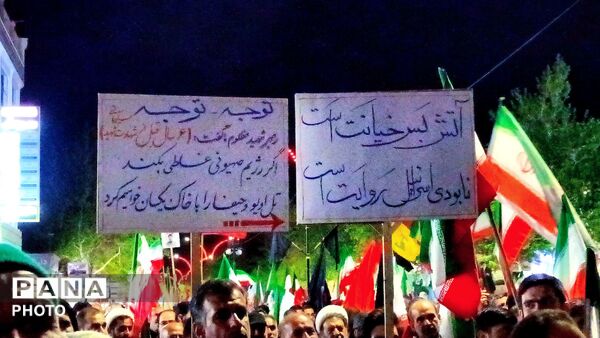 توجه - توجه
رهبر شهید مظلوم ما گفت:
اگر رژیم صهیونی غلطی بکند
تل اویو و حیفا را با خاک یکسان خواهیم کرد
آتش بس خیانت است
نابودی اسرائیل روایت است
PANA
PHOTO